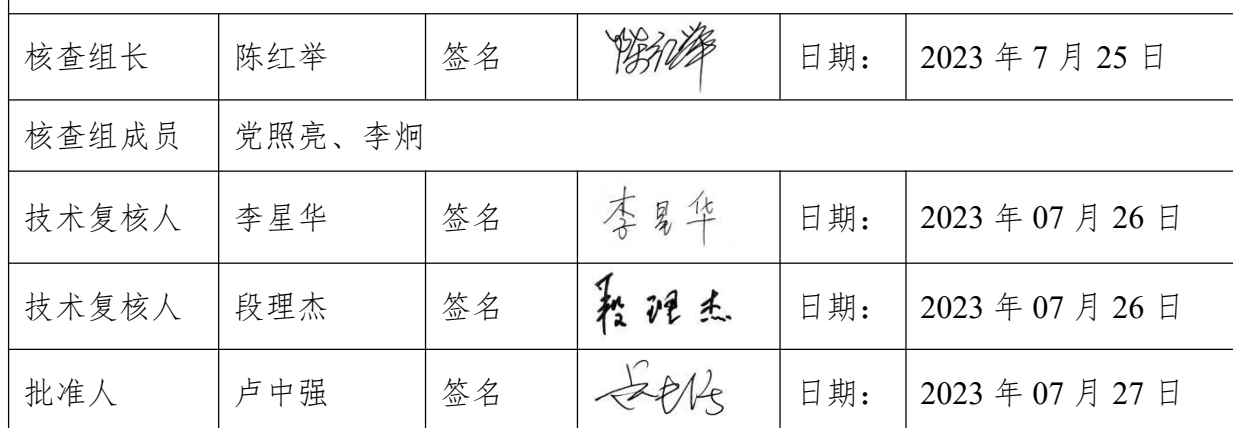 核查组长 陈红举 签名 陈红举 日期: 2023 年 7 月 25 日
核查组成员 党照亮、李炯
技术复核人 李星华 签名 李星华 日期: 2023 年 07 月 26 日
技术复核人 段理杰 签名 段理杰 日期: 2023 年 07 月 26 日
批准人 卢中强 签名 日期: 2023 年 07 月 27 日